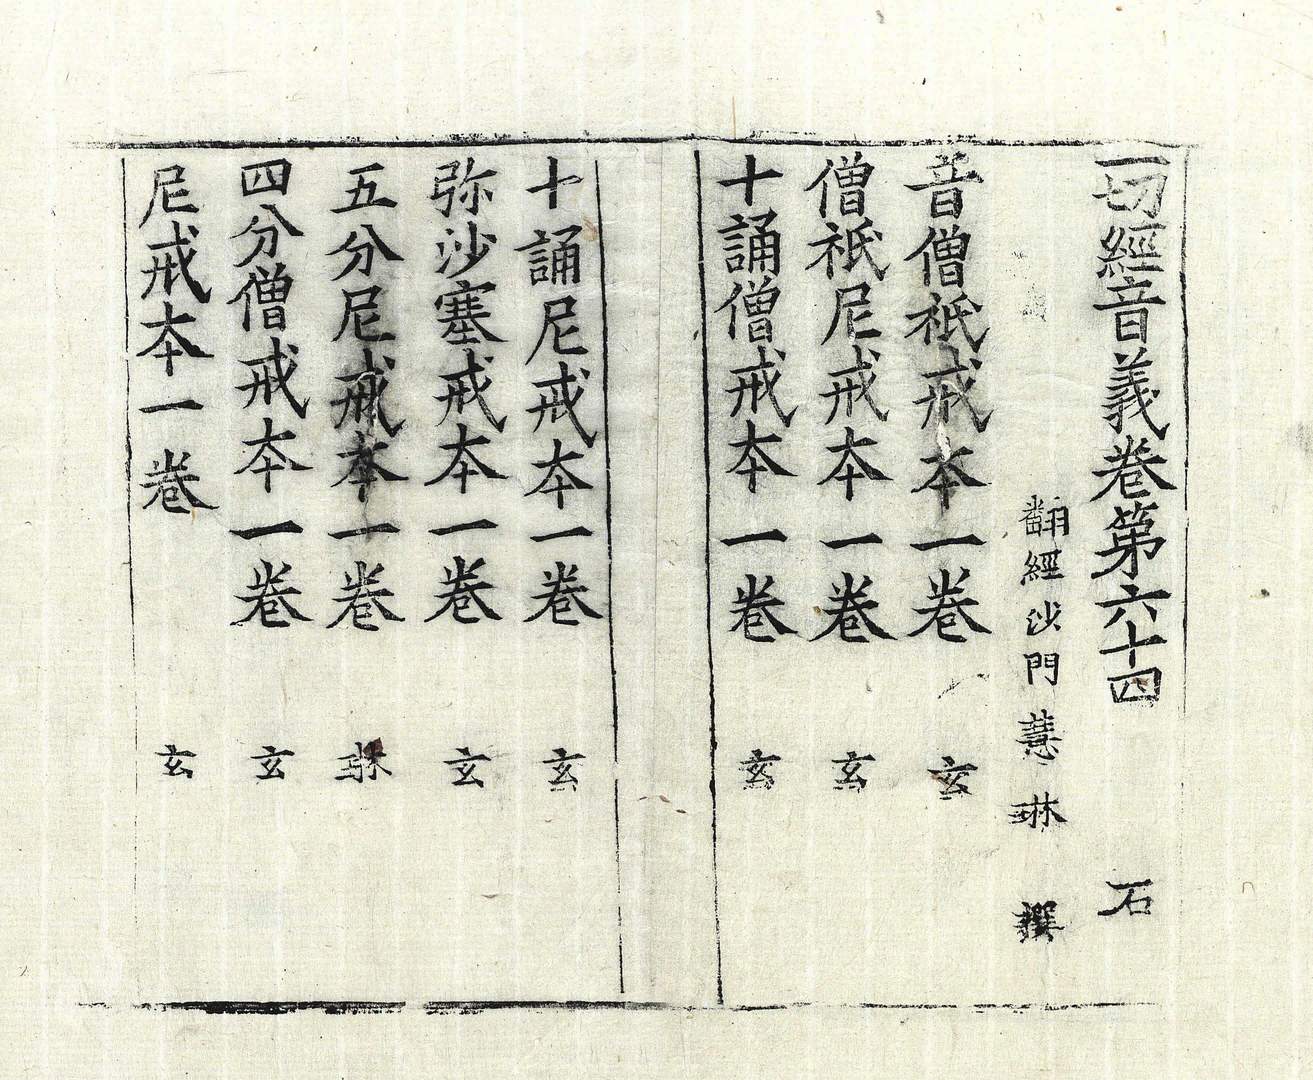 一切經音義卷第六十四 石
翻經沙門慧琳 撰
音僧祇戒本一卷 玄
僧祇尼戒本一卷 玄
十誦僧戒本一卷 玄
十誦尼戒本一卷 玄
弥沙塞戒本一卷 玄
五分尼戒本一卷 琳
四分僧戒本一卷 玄
尼戒本一卷 玄